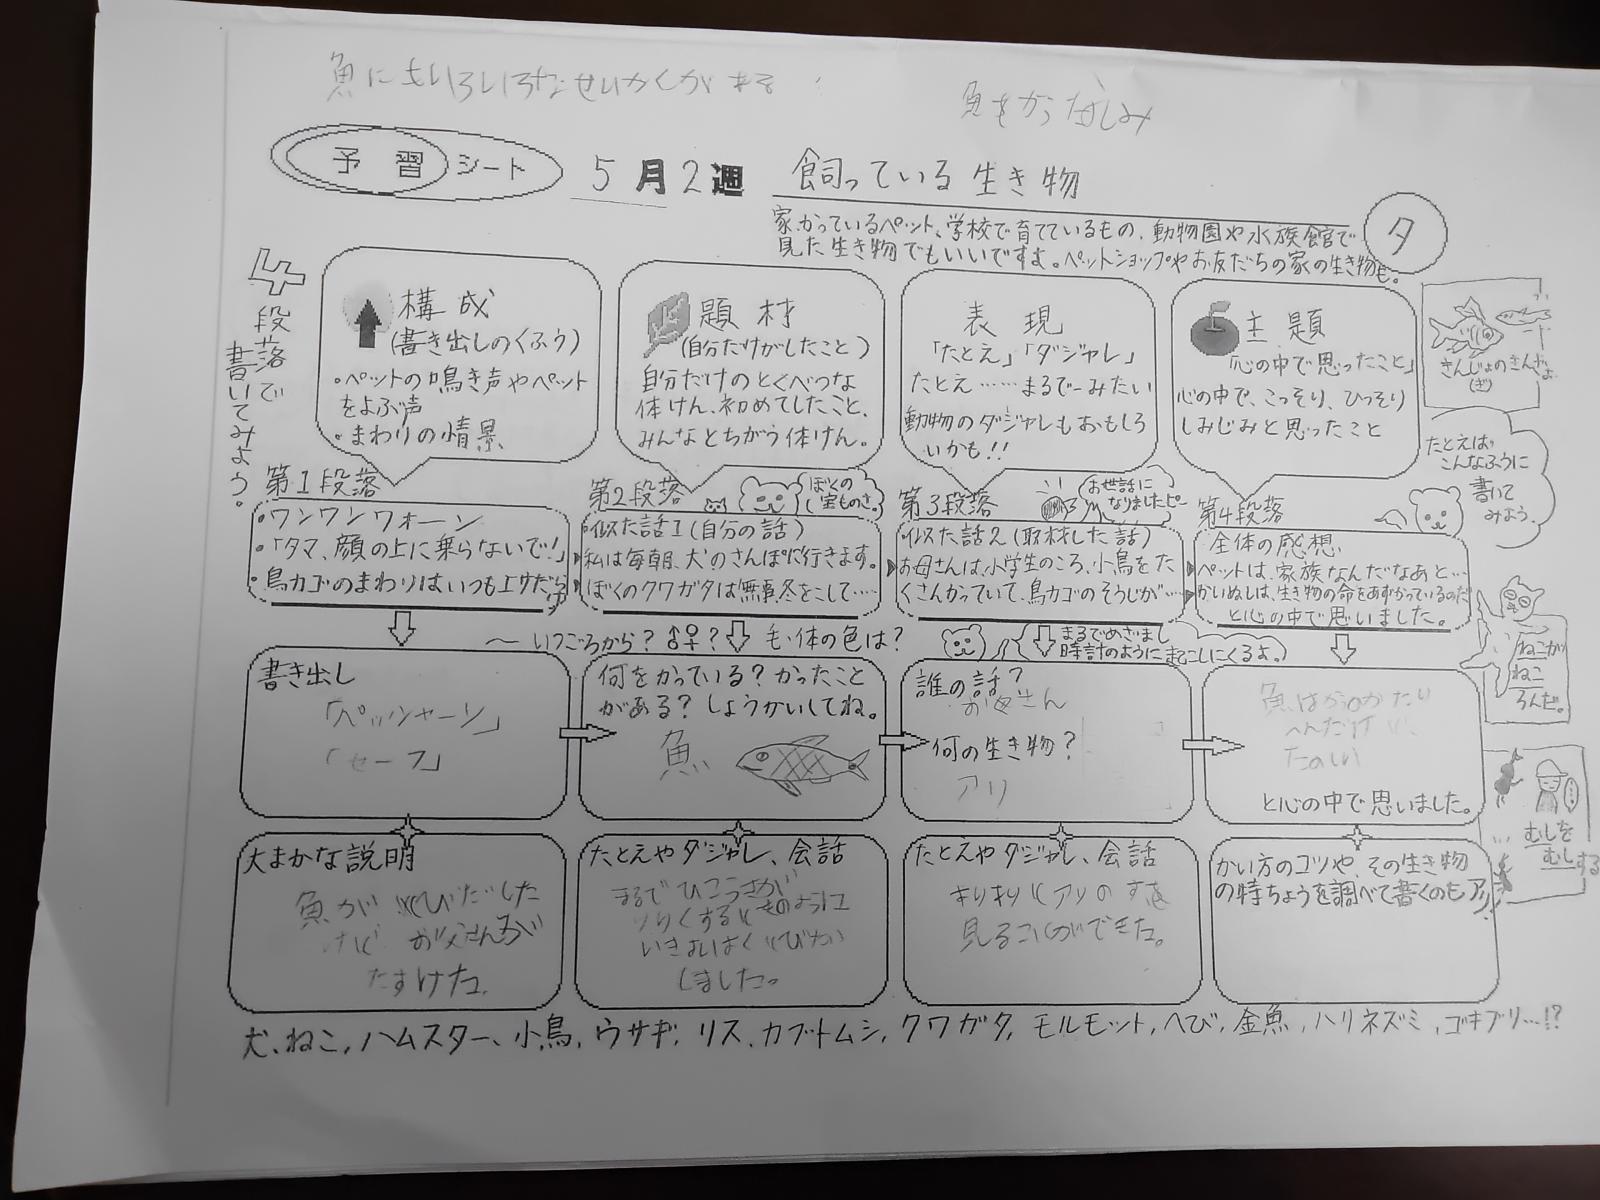 魚にもいろいろなせいかくがある
魚をかう
予習シート
5月2週
飼っている生き物
夕
家、かっているペット、学校で育てているもの、動物園や水族館で
見た生き物でもいいですよ。ペットショップやお友だちの家の生き物も。
4段落で
書いてみよう。
構成
(書き出しのくふう)
・ペットの鳴き声やペット
をよぶ声
・まわりの情景
題材
(自分だけがしたこと)
自分だけのとくべつな
体けん、初めてしたこと、
みんなとちがう体けん。
表現
「たとえ」「ダジャレ」
たとえ……まるで―みたい
動物のダジャレもおもしろ
いかも!!
主題
「心の中で思ったこと」
心の中で、こっそり、ひっそり
しみじみと思ったこと
きんじょのきんぎょ
(ぎ)
たとえば、
こんなふうに
書いて
みよう。
第1段落
・ワンワンウォーン
・「タマ、顔の上に乗らないで!」
・鳥カゴのまわりはいつも
第2段落
ぼくの
宝ものさ。
・似た話1(自分の話)
私は毎朝、犬のさんぽに行きます。
ぼくのクワガタは無事冬をこして……
第3段落
お世話に
なりましたピー
・似た話2(取材した話)
お母さんは、小学生のころ、小鳥をた
くさんかっていて、鳥カゴのそうじが……
第4段落
全体の感想
ペットは、家族なんだなあと…
かいぬしは、生き物の命をあずかっているのだ
と心の中で思いました。
〜いつごろから?♂♀?
毛・体の色は?
まるでめざまし
時計のように起こしにくるよ。
書き出し
「セーフ」
何をかっている?かったこと
がある?しょうかいしてね。
魚
誰の話?
お母さん
何の生き物?
アリ
魚はかうのかたり
たのしい
と心の中で思いました。
ねこが
ねこ
ろんだ。
大まかな説明
魚がとびだした
けど お父さんが
たすけた。
たとえやダジャレ、会話
まるでひこうきが
りりくするときのように
いきおいよくとびだ
しました。
たとえやダジャレ、会話
アリのすを
見ることができた。
かい方のコツや、その生き物
の特ちょうを調べて書くのもアリ!
むしを
むしする
犬、ねこ、ハムスター、小鳥、ウサギ、リス、カブトムシ、クワガタ、モルモット、へび、金魚、ハリネズミ、ゴキブリ…!?